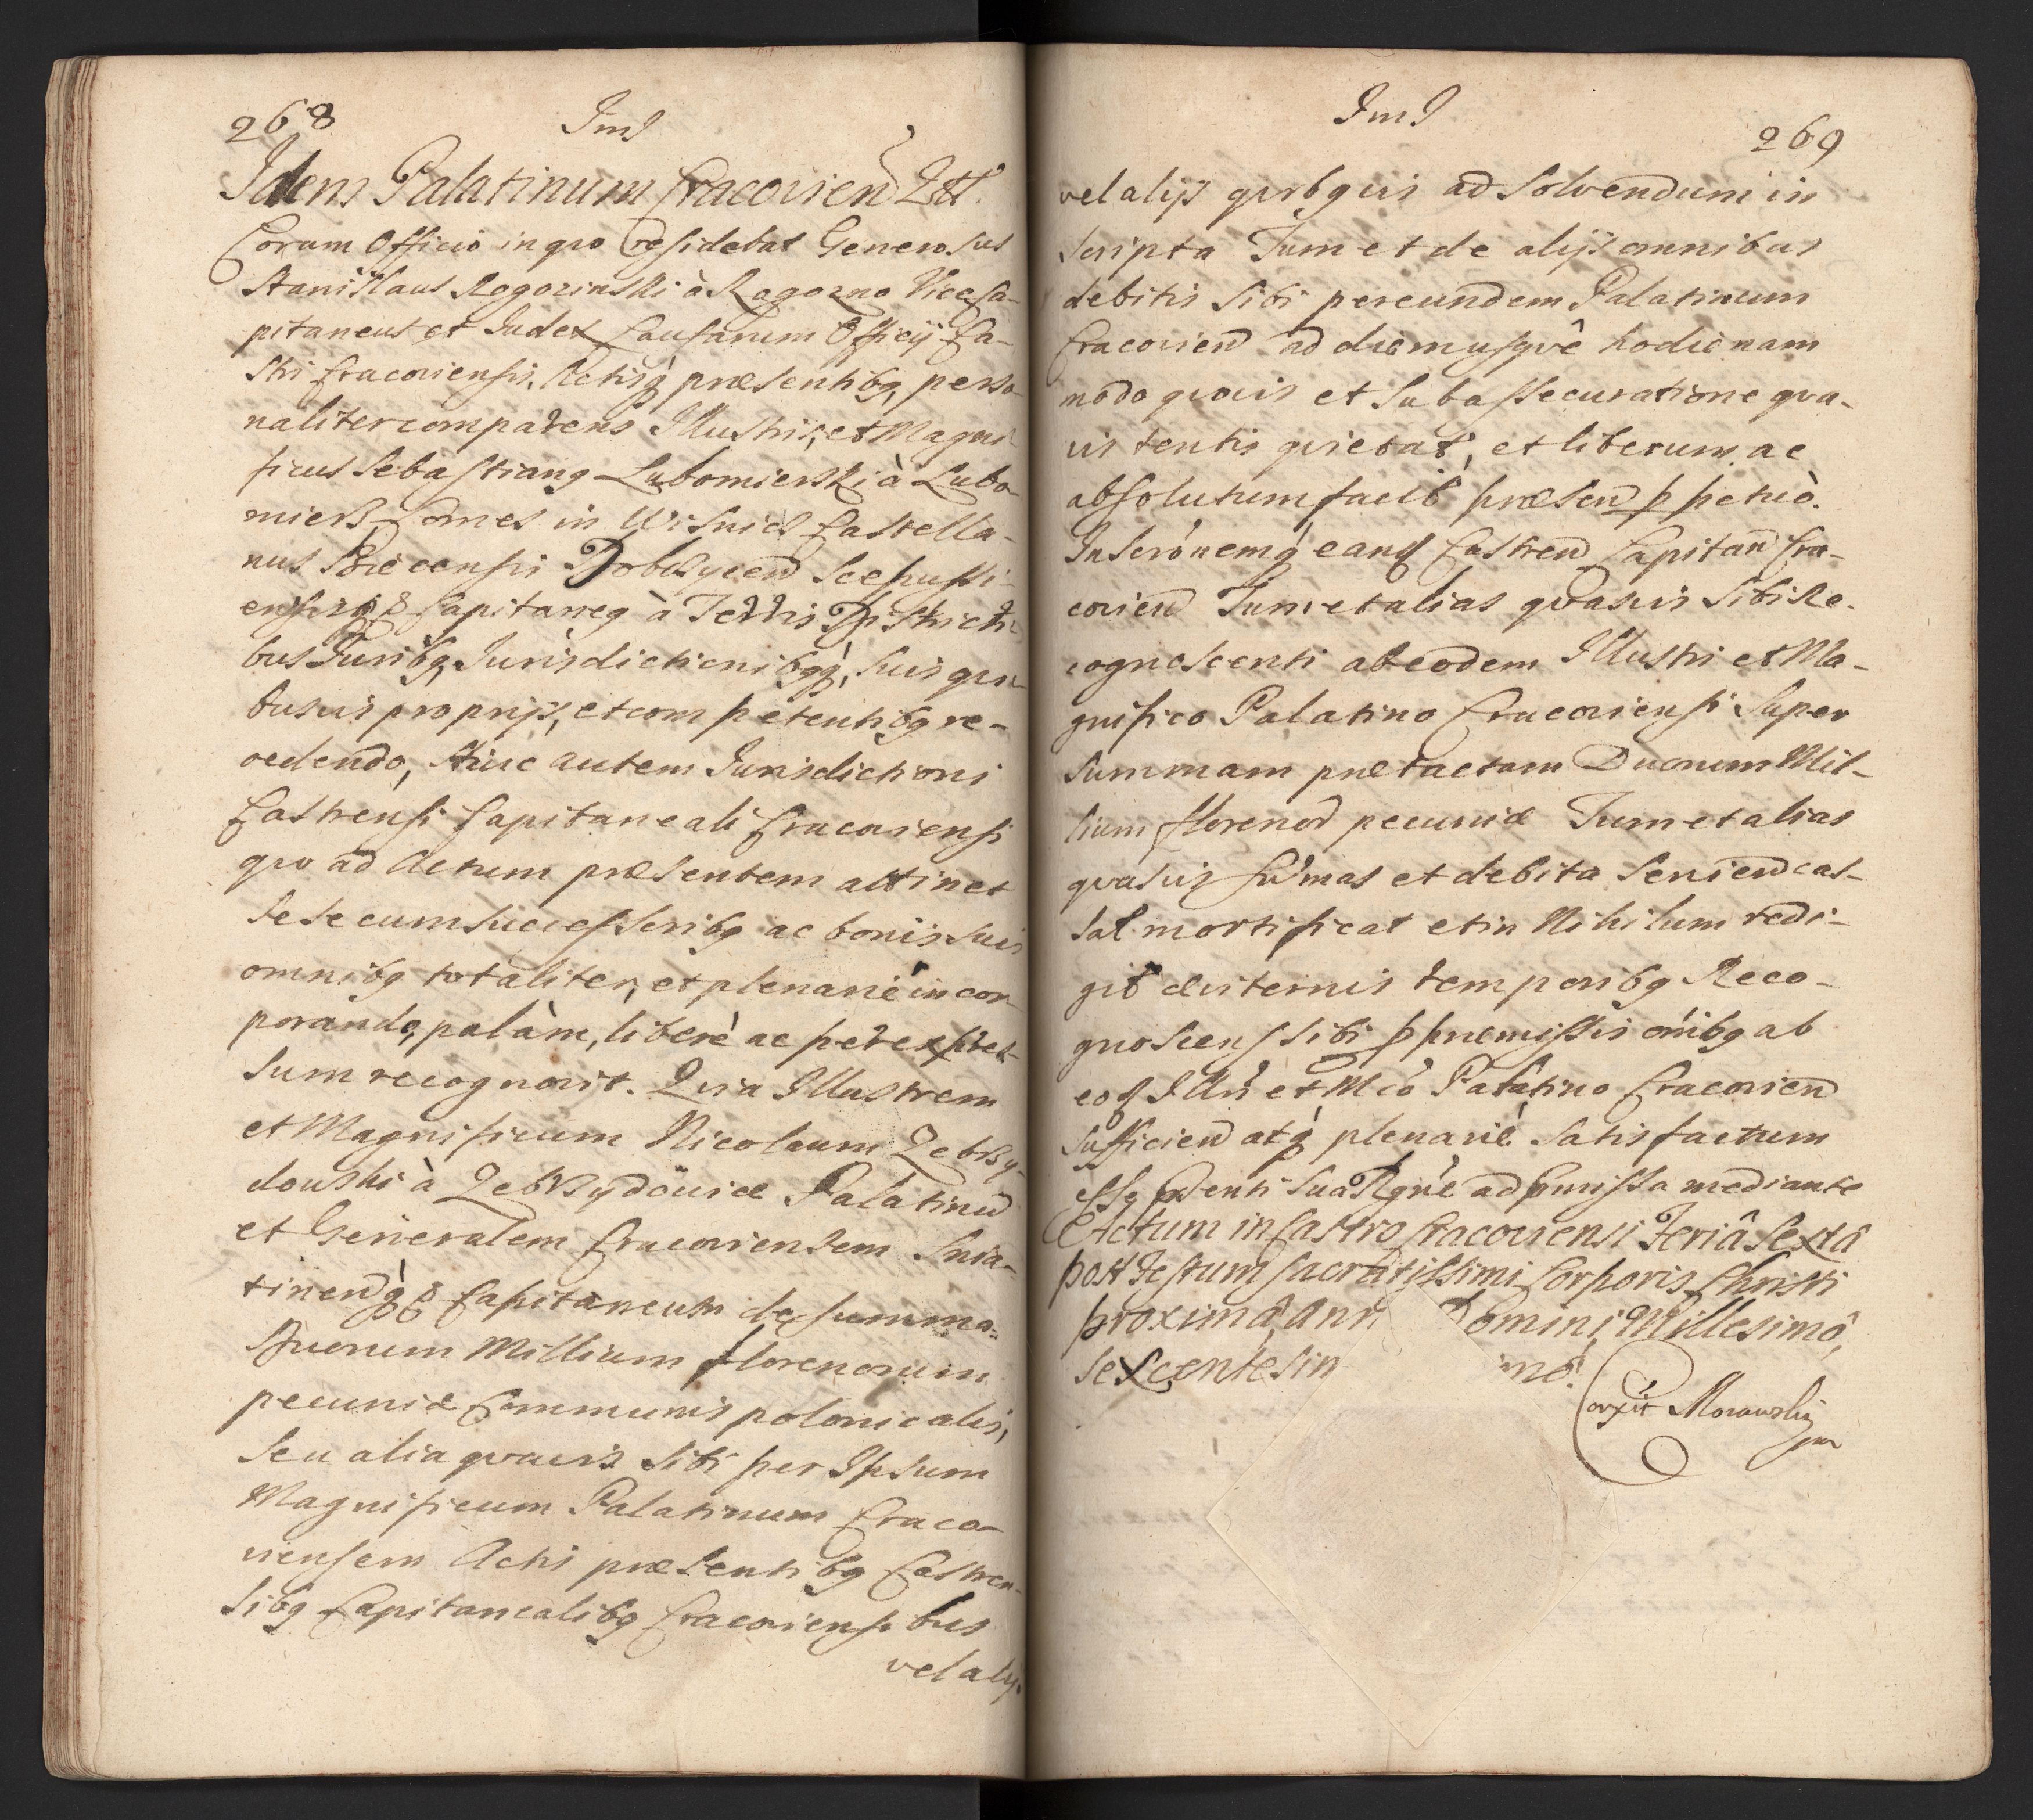 268
Idem Palatinum Cracovien Qtt.
Coram Officio in quo residebat Generosus
Stanislaus Rogozinski à Rogozno Viceca-
pitaneus et Iudex Causarum Officij Ca-
stri Cracoviensis, Actisq præsentibq, perso-
naliter comparens Illustris, et Magni-
ficus Sebastianq Lubomierski à Lubo-
mierz Comes in Wisnicz Castella-
nus Biecensis Dobczycen Scepusi-
ensisq & Capitaneq à Terris Districti-
bus Iuribq, Iurisdictionibqq, suis qui-
busvis proprijs, et competentibq re-
cedendo, Huic autem Iurisdictioni
Castrensi Capitaneali Cracoviensi
quo ad Actum præsentem attinet
se se cum successoribq ac bonis suis
omnibq totaliter, et plenariè incor-
porando, palàm, liberè ac per expres-
sum recognovit. Quia Illustrem
et Magnificum Nicolaum Zebrzy-
dowski à Zebrzydowice Palatinu
et Generalem Cracoviensem Snia-
tinenq & Capitaneum de summa
Duorum Millium florenorum
pecuniæ Communis polonicalis,
seu alia quavis sibi per Ipsum
Magnificum Palatinum Craco-
viensem Actis præsentibq Castren-
sibq Capitanealibq Cracoviensibus
vel alijs
269
vel alijs quibqvis ad solvendum in
scripta Tum et de alijs omnibus
debitis sibi per eundem Palatinum
Cracovien ad diem usquê hodienam
modo quovis et sub assecuratione qua-
vis tentis quietat, et liberum ac
absolutum facit præsen p petuò.
Inscrónemq eand Castren Capitan Cra-
covien Tum et alias quasvis sibi Re-
cognoscenti ab eodem Illustri et Ma-
gnifico Palatino Cracoviensi super
summam prætactam Duorum Mil-
lium florenor pecuniæ Tum et alias
quasvis sumas et debita servien cas-
sat mortificat et in Nihilum redi-
git æviternis temporibq Reco-
gnoscens sibi p præmissis oníbq ab
eod Illri et Mco Palatino Cracovien
sufficien atq plenariè satisfactum
esse pnti sua Rgne ad pmissa mediante
Actum in Castro Cracoviensi Feriâ Sextâ
post Festum sacratissimi Corporis Christi
proximâ, Ann Domini, Millesimô,
sexcentesim imô.
Corxit Morawski